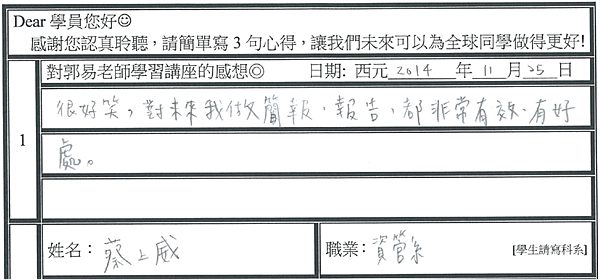 Dear 學員您好☺
感謝您認真聆聽，請簡單寫 3 句心得，讓我們未來可以為全球同學做得更好!
對郭易老師學習講座的感想◎ 日期: 西元 2014 年 11 月 25 日
1
很好笑，對未來我做簡報、報告、都非常有效、有好
處。
姓名： 蔡上威 職業： 資管系 [學生請寫科系]